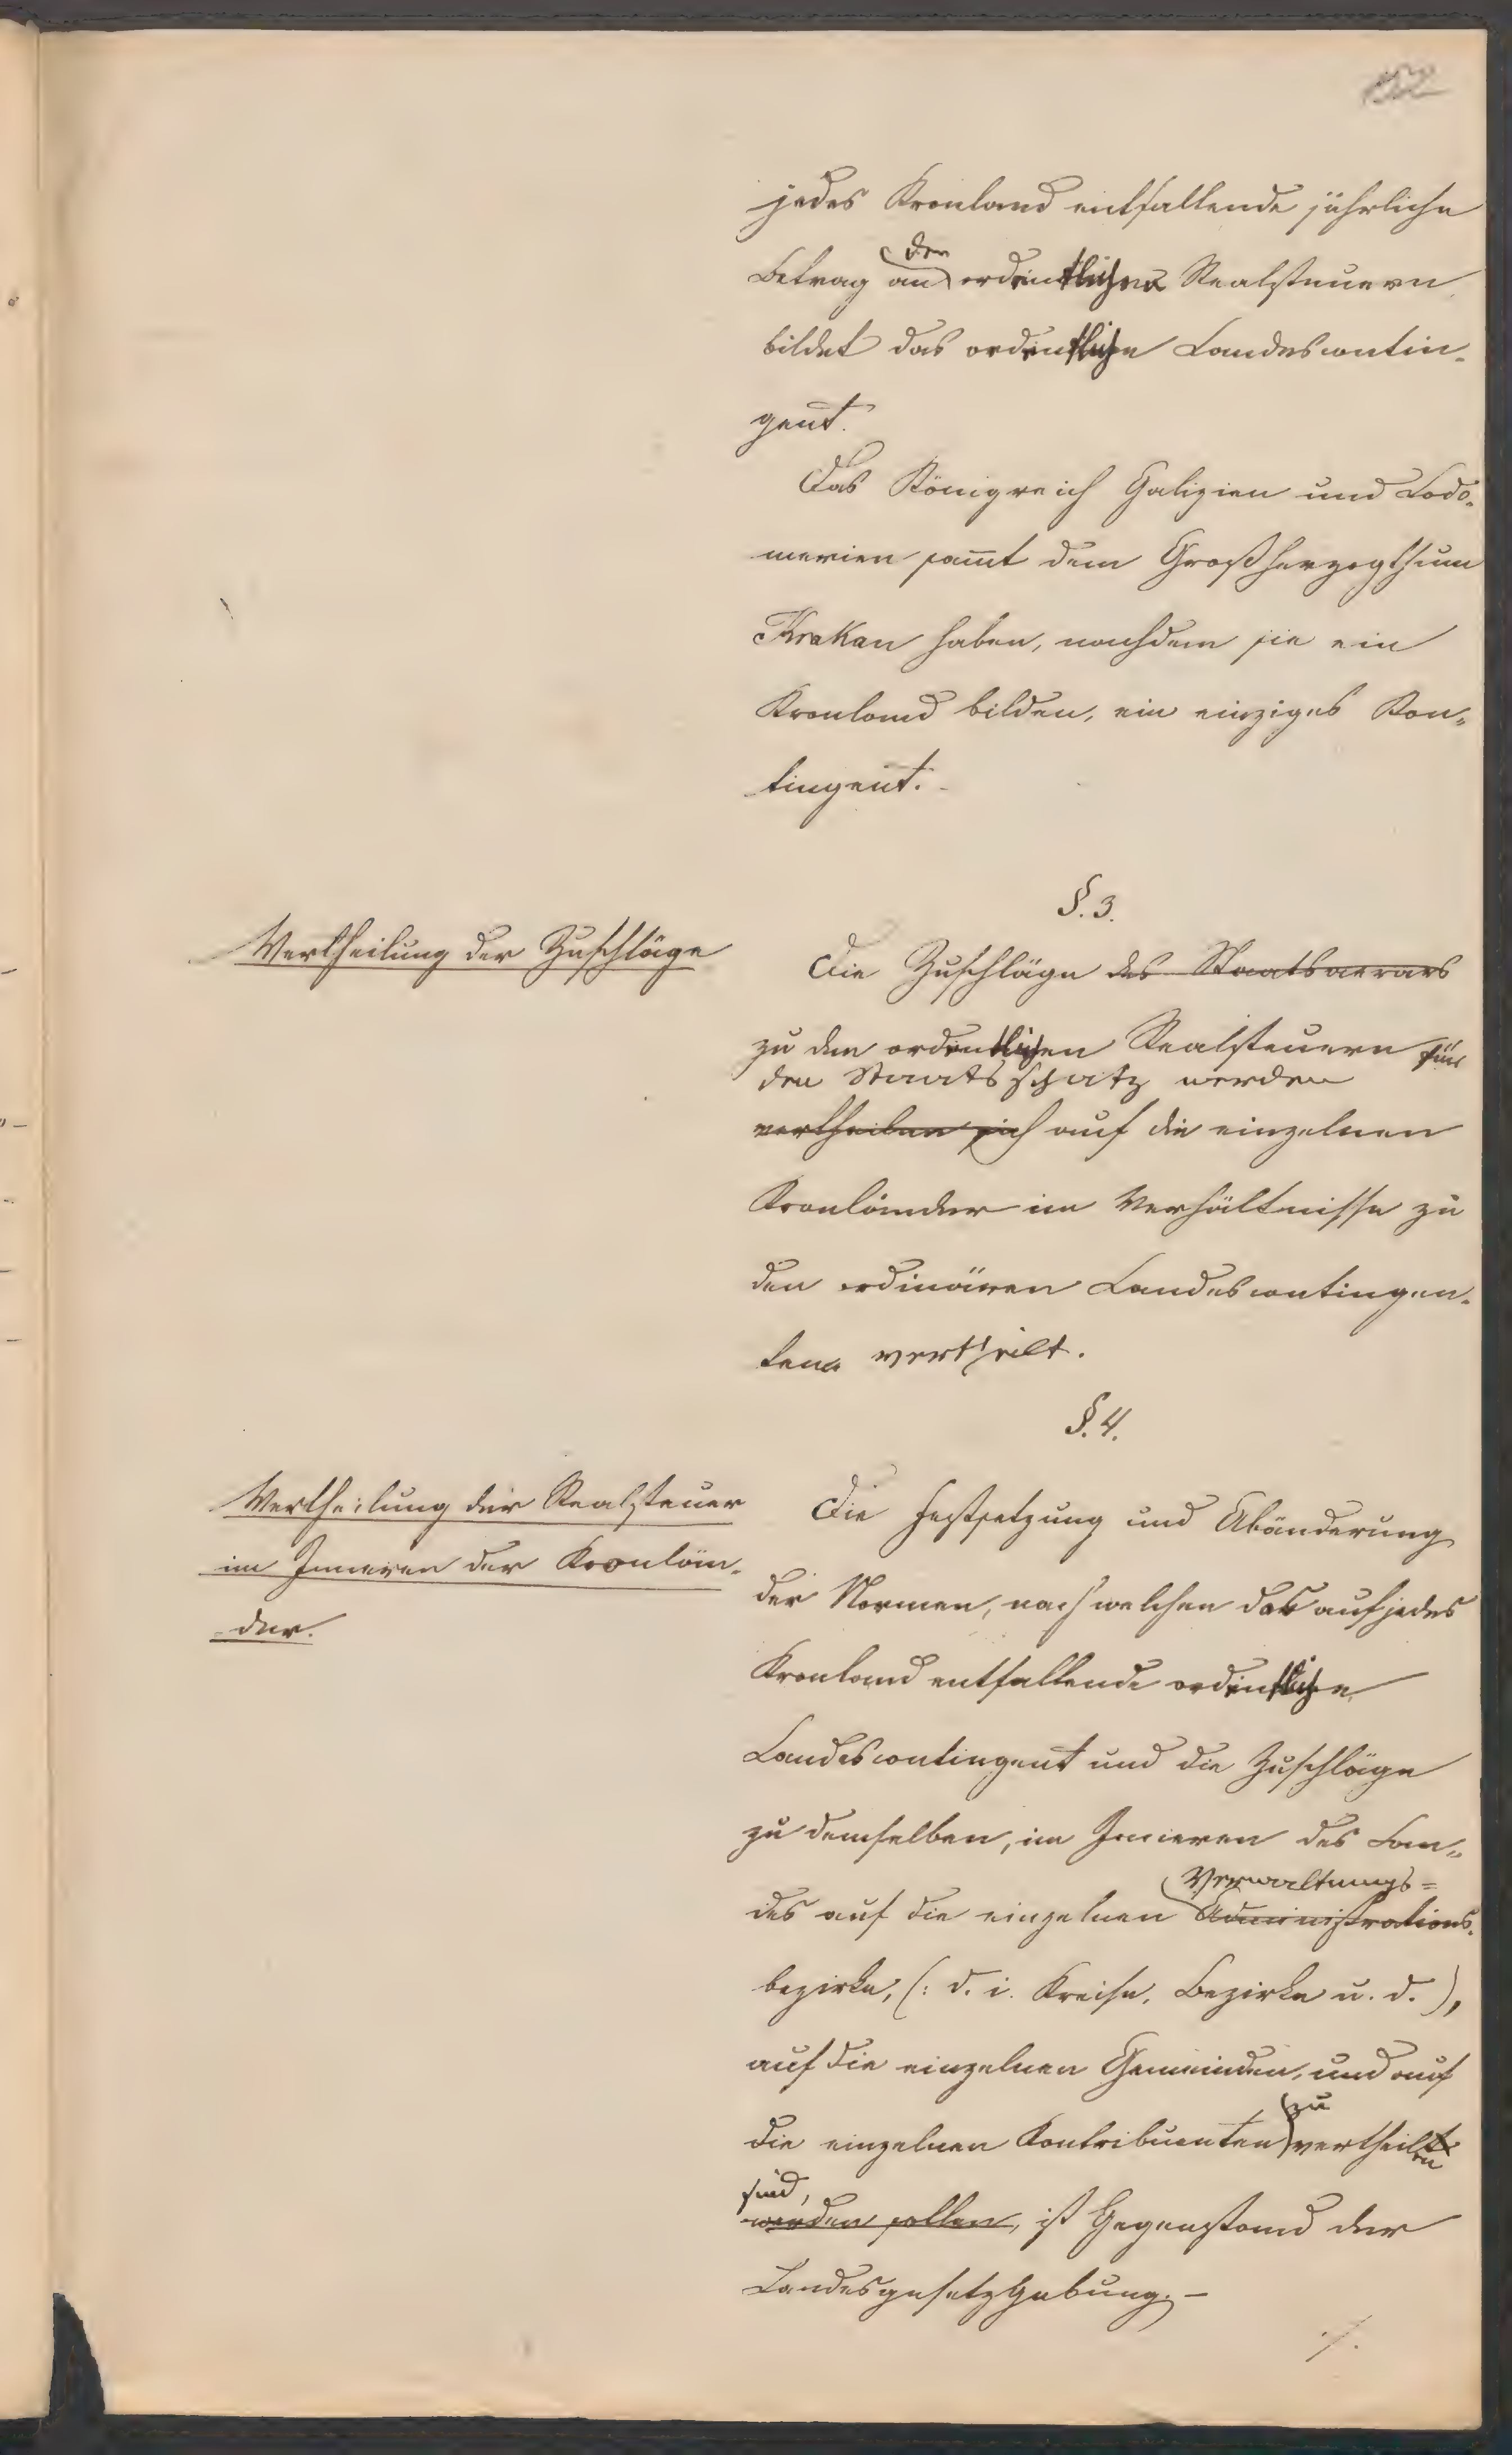 152
jedes Kronland entfallende jährliche
den
Betrag an ordentlichen Realsteuern
bildet das ordentliche Landescontin-
gent.
Das Königreich Galizien und Lodo-
merien sam̄t dem Großherzogthum
Krakau haben, nachdem sie ein
Kronland bilden, ein einziges Kon-
tingent.
§. 3.
Vertheilung der Zuschläge
Die Zuschläge des Staatsaerars
zu den ordentlichen Realsteuern für
den Staatsschatz werden
vertheilen sich auf die einzelnen
Kronländer im Verhältnisse zu
den ordinären Landescontingen-
ten vertheilt.
§. 4.
Vertheilung der Realsteuer
im Inneren der Kronlän-
der.
Die Festsetzung und Abänderung
der Normen, nach welchen das auf jedes
Kronland entfallende ordentliche
Landescontingent und die Zuschläge
zu demselben, im Inneren des Lan-
Verwaltungs-
des auf die einzelnen Administrations-
bezirke, (: d. i. Kreise, Bezirke u. d. ),
auf die einzelnen Gemeinden, und auf
zu
die einzelnen Kontribuenten vertheilen
sind,
werden sollen, ist Gegenstand der
Landesgesetzgebung. –
./.